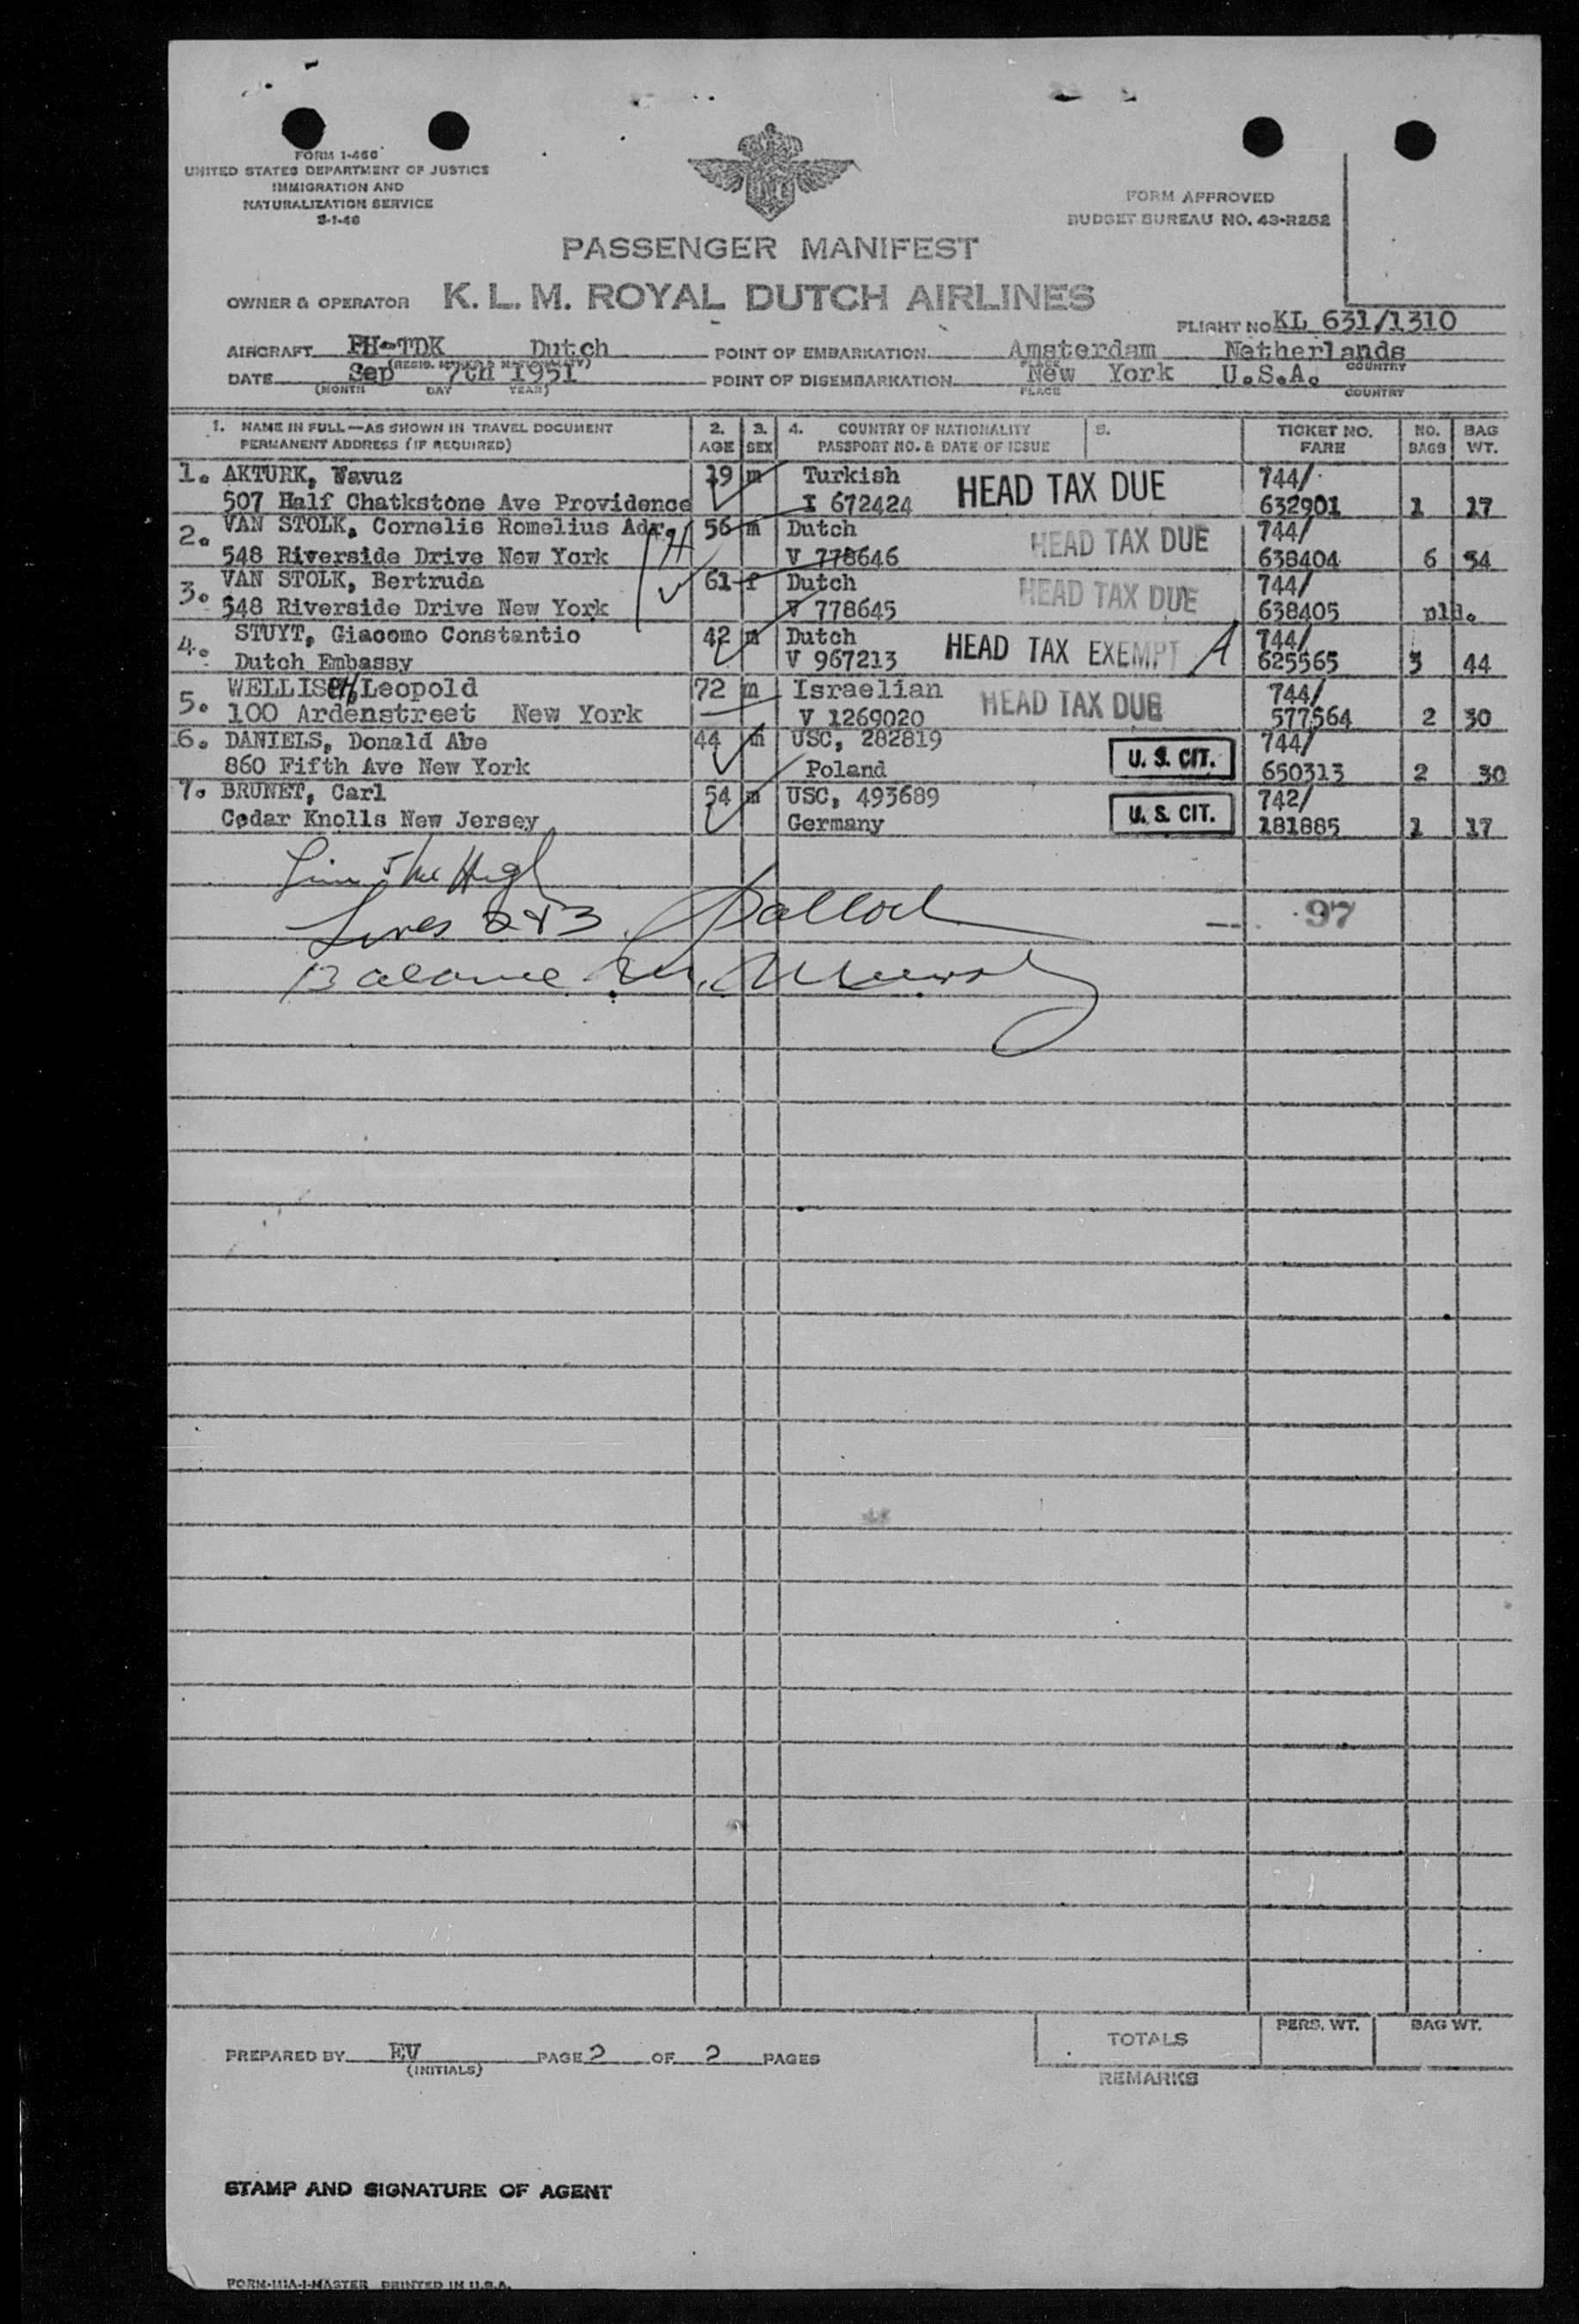 FORM I-466
UNITED STATES DEPARTMENT OF JUSTICE
IMMIGRATION AND
NATURALIZATION SERVICE
3-1-46
FORM APPROVED
BUDGET BUREAU NO. 43-R252
PASSENGER MANIFEST
OWNER & OPERATOR K. L. M. ROYAL DUTCH AIRLINES
FLIGHT NO KL 631/1310
AIRCRAFT PH-TDK Dutch POINT OF EMBARKATION Amsterdam Netherlands
PLACE COUNTRY
DATE Sep 7th 1951 POINT OF DISEMBARKATION New York U.S.A.
(MONTH DAY YEAR) PLACE COUNTRY
1. NAME IN FULL—AS SHOWN IN TRAVEL DOCUMENT 2. 3. 4. COUNTRY OF NATIONALITY 5. TICKET NO. NO. BAG
PERMANENT ADDRESS (IF REQUIRED) AGE SEX PASSPORT NO. & DATE OF ISSUE FARE BAGS WT.
1. AKTURK, Navuz 19 m Turkish HEAD TAX DUE 744/
507 Half Chatkstone Ave Providence I 672424 632901 1 17
2. VAN STOLK, Cornelis Romelius Adr. 56 m Dutch HEAD TAX DUE 744/
548 Riverside Drive New York V 778646 638404 6 54
3. VAN STOLK, Bertruda 61 f Dutch HEAD TAX DUE 744/
548 Riverside Drive New York V 778645 638405 pld.
4. STUYT, Giacomo Constantio 42 m Dutch HEAD TAX EXEMPT A 744/
Dutch Embassy V 967213 625565 3 44
5. WELLISCH, Leopold 72 m Israelian HEAD TAX DUE 744/
100 Ardenstreet New York V 1269020 577564 2 30
6. DANIELS, Donald Abe 44 m USC, 282819 U. S. CIT. 744/
860 Fifth Ave New York Poland 650313 2 30
7. BRUNET, Carl 54 m USC, 493689 U. S. CIT. 742/
Cedar Knolls New Jersey Germany 181885 1 17
Lines 2 & 3
97
Balance
TOTALS PERS. WT. BAG WT.
PREPARED BY EV PAGE 2 OF 2 PAGES
(INITIALS)
REMARKS
STAMP AND SIGNATURE OF AGENT
FORM-111A-1-MASTER PRINTED IN U.S.A.